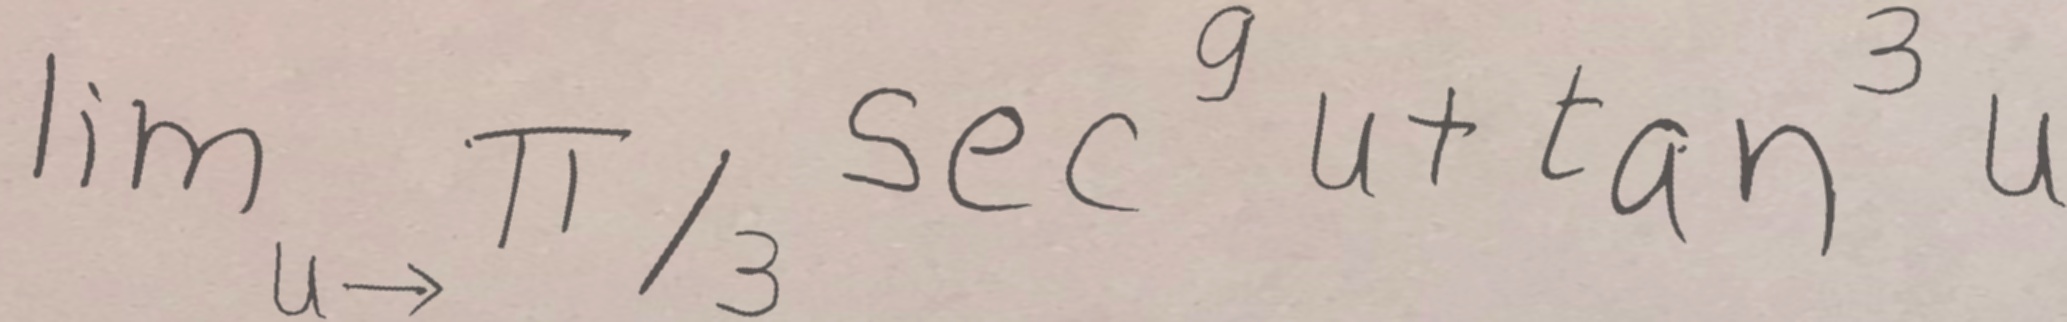 lim u→π/3 sec⁹ u + tan³ u